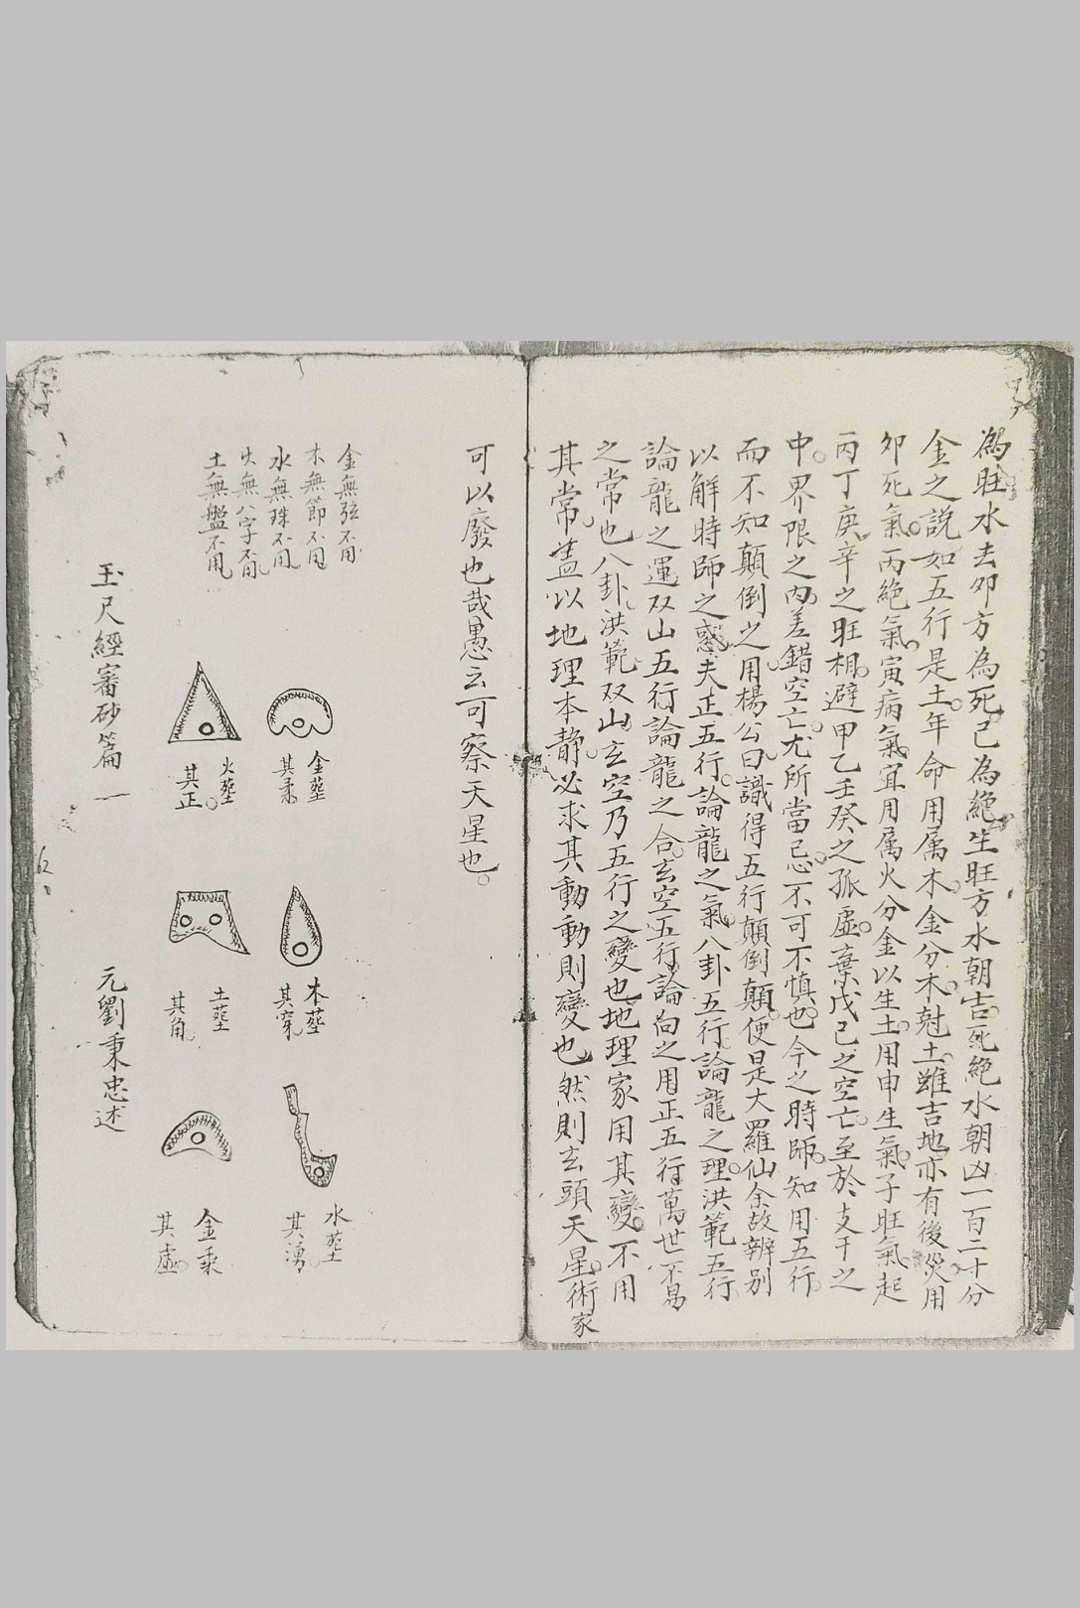 為旺水去卯方為死己為絶生旺方水朝吉死絶水朝凶一百二十分
金之説如五行是土年命用属木金分木尅土雖吉地亦有後災用
卯死氣丙絶氣寅病氣宜用属火分金以生土用申生氣子旺氣起
丙丁庚辛之旺相避甲乙壬癸之孤虛棄戊己之空亡至於支干之
中界限之内差錯空亡尤所當忌不可不慎也今之時師知用五行
而不知顛倒之用楊公曰識得五行顛倒顛便是大羅仙余故辨别
以解時師之惑夫正五行論龍之氣八卦五行論龍之理洪範五行
論龍之運双山五行論龍之合玄空五行論向之用正五行萬世不易
之常也八卦洪範双山玄空乃五行之變也地理家用其變不用
其常盖以地理本静必求其動動則變也然則玄頭天星術家
可以廢也哉愚云可察天星也
金無弦不用
木無節不用
水無珠不用
火無八字不用
土無盤不用
金塟
其柔
木塟
其穿
水塟
其湧
火塟
其正
土塟
其角
金乗
其虛
玉尺經審砂篇一 元劉秉忠述